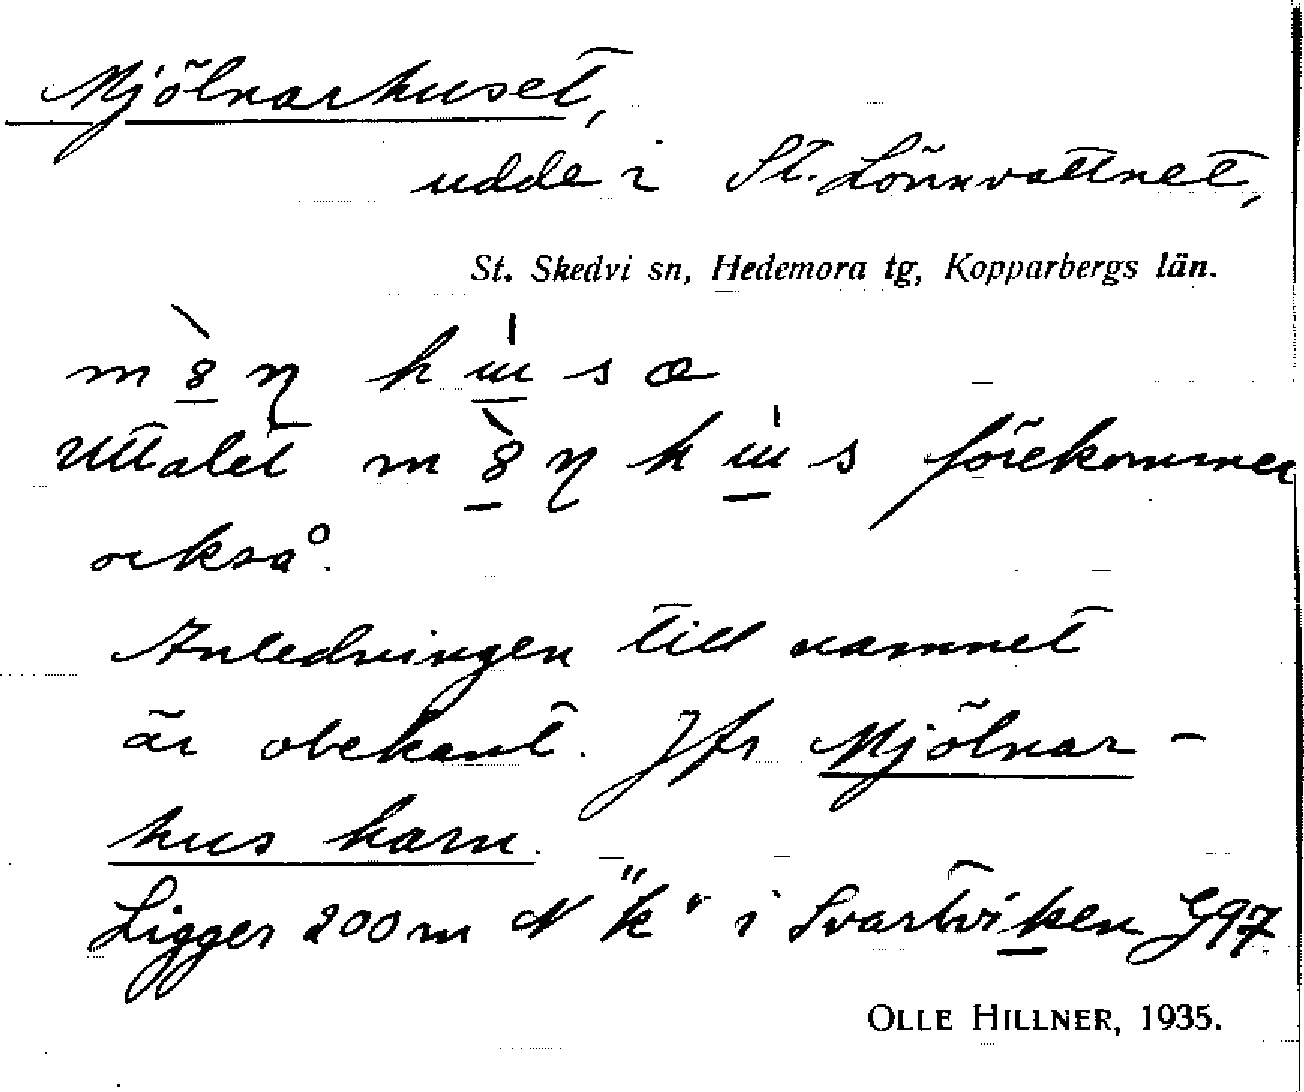 Mjölnarhuset,
udde i St. Lönnvattnet,
St. Skedvi sn, Hedemora tg, Kopparbergs län.
Uttalet förekommer
också.
Anledningen till namnet
är obekant. Jfr Mjölnar-
hus karn.
Ligger 200 m N "k" i Svartviken G97
OLLE HILLNER, 1935.